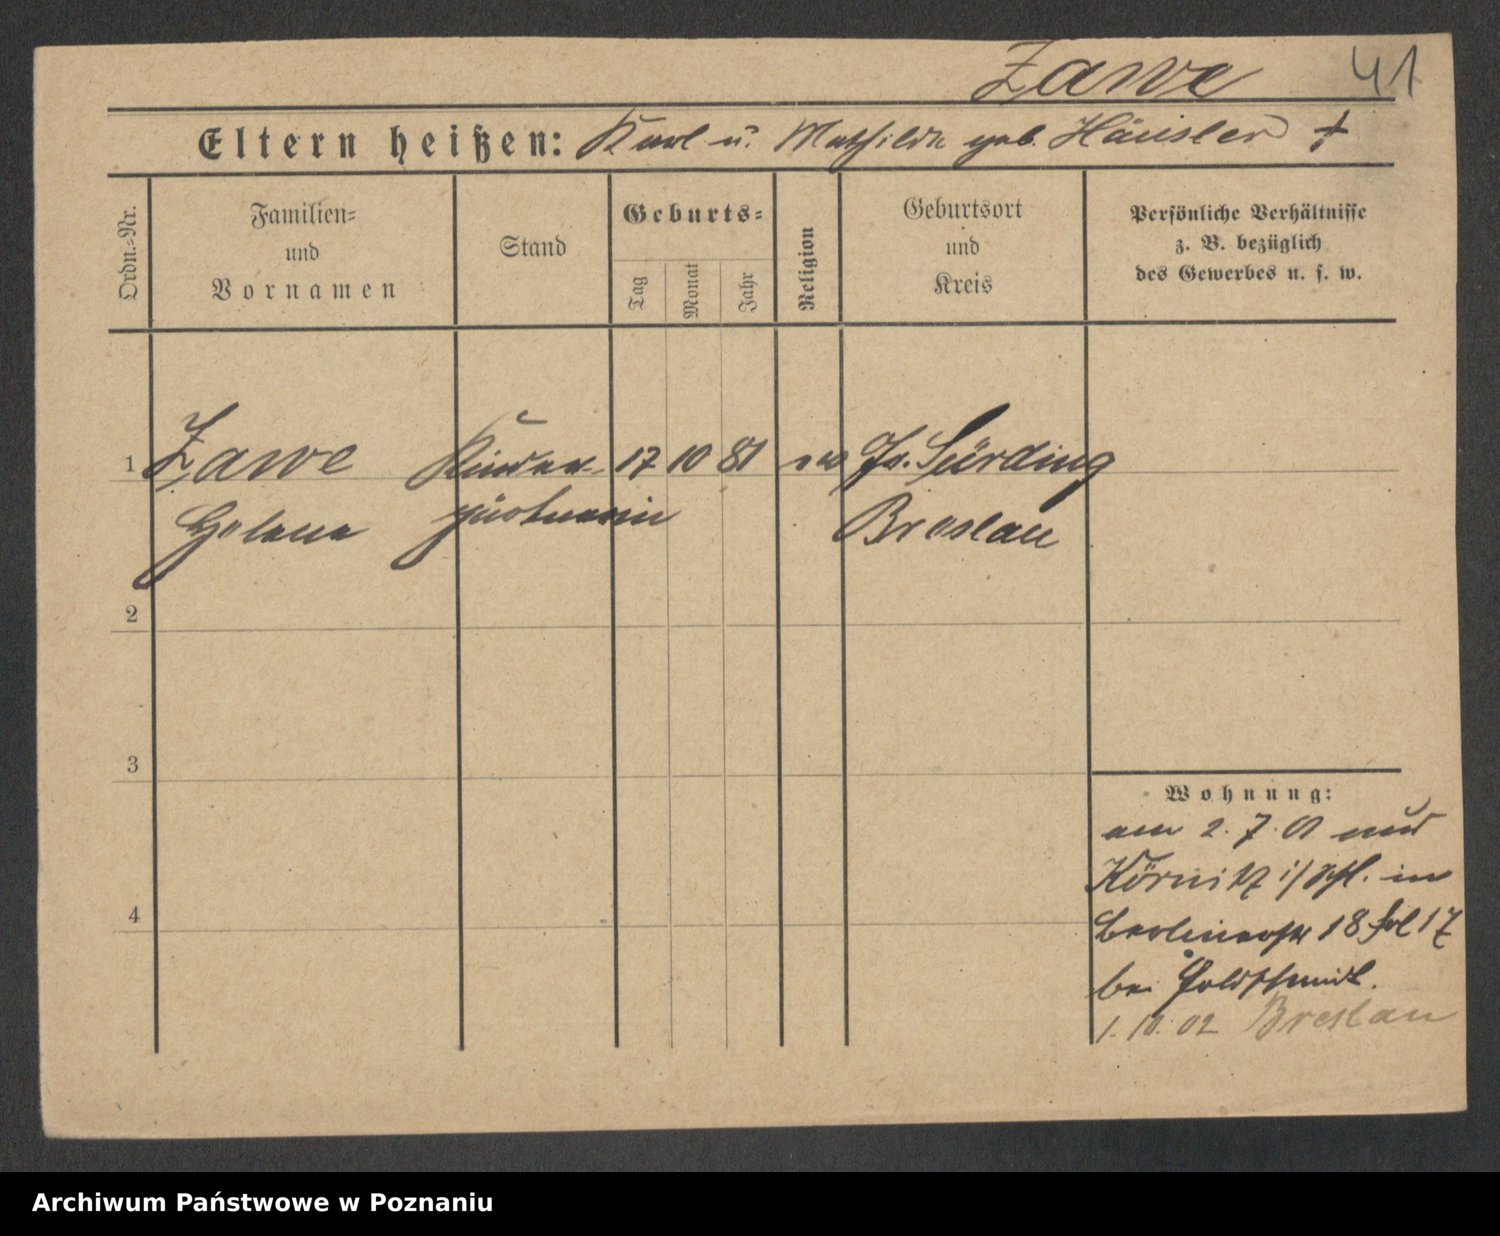 Zawe 41
Eltern heißen: Karl u. Mathilde geb. Häusler †
Ordn.-Nr.
Familien-
und
Vornamen
Stand
Geburts-
Tag
Monat
Jahr
Religion
Geburtsort
und
Kreis
Persönliche Verhältnisse
z. B. bezüglich
des Gewerbes u. s. w.
1 Zawe Kinder- 17 10 81 ev Gr. Sürding
Helene gärtnerin Breslau
2
3
4
Wohnung:
am 2. 7. 01 aus
Körnitz i/Schl. in
Berlinerstr 18 bei Goldschmidt.
1. 10. 02 Breslau
Archiwum Państwowe w Poznaniu